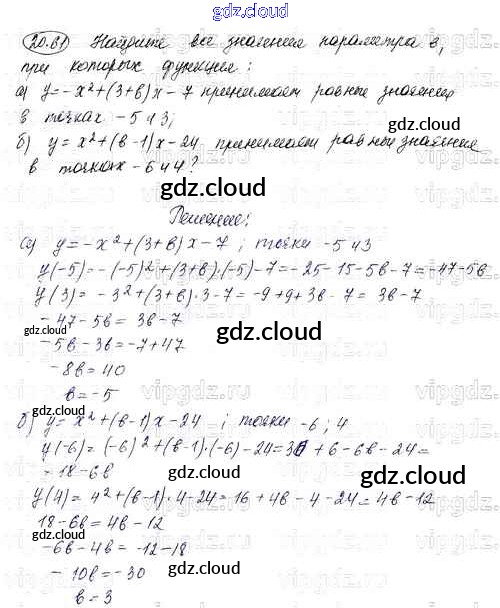 gdz.cloud
20.61 Найдите все значения параметра в,
при которых функция:
а) y = -x² + (3+в)x - 7 принимает равные значения
в точках -5 и 3;
б) y = x² + (в-1)x - 24 принимает равные значения
в точках -6 и 4?
gdz.cloud
gdz.cloud
Решение:
а) y = -x² + (3+в)x - 7; точки -5 и 3
y(-5) = -(-5)² + (3+в)·(-5) - 7 = -25 - 15 - 5в - 7 = -47 - 5в
y(3) = -3² + (3+в)·3 - 7 = -9 + 9 + 3в - 7 = 3в - 7
-47 - 5в = 3в - 7
gdz.cloud
gdz.cloud
-5в - 3в = -7 + 47
-8в = 40
gdz.cloud
в = -5
б) y = x² + (в-1)x - 24 ; точки -6; 4
gdz.cloud
y(-6) = (-6)² + (в-1)·(-6) - 24 = 36 + 6 - 6в - 24 =
- 18 - 6в
gdz.cloud
y(4) = 4² + (в-1)·4 - 24 = 16 + 4в - 4 - 24 = 4в - 12
18 - 6в = 4в - 12
gdz.cloud
-6в - 4в = -12 - 18
-10в = -30
gdz.cloud
в = 3